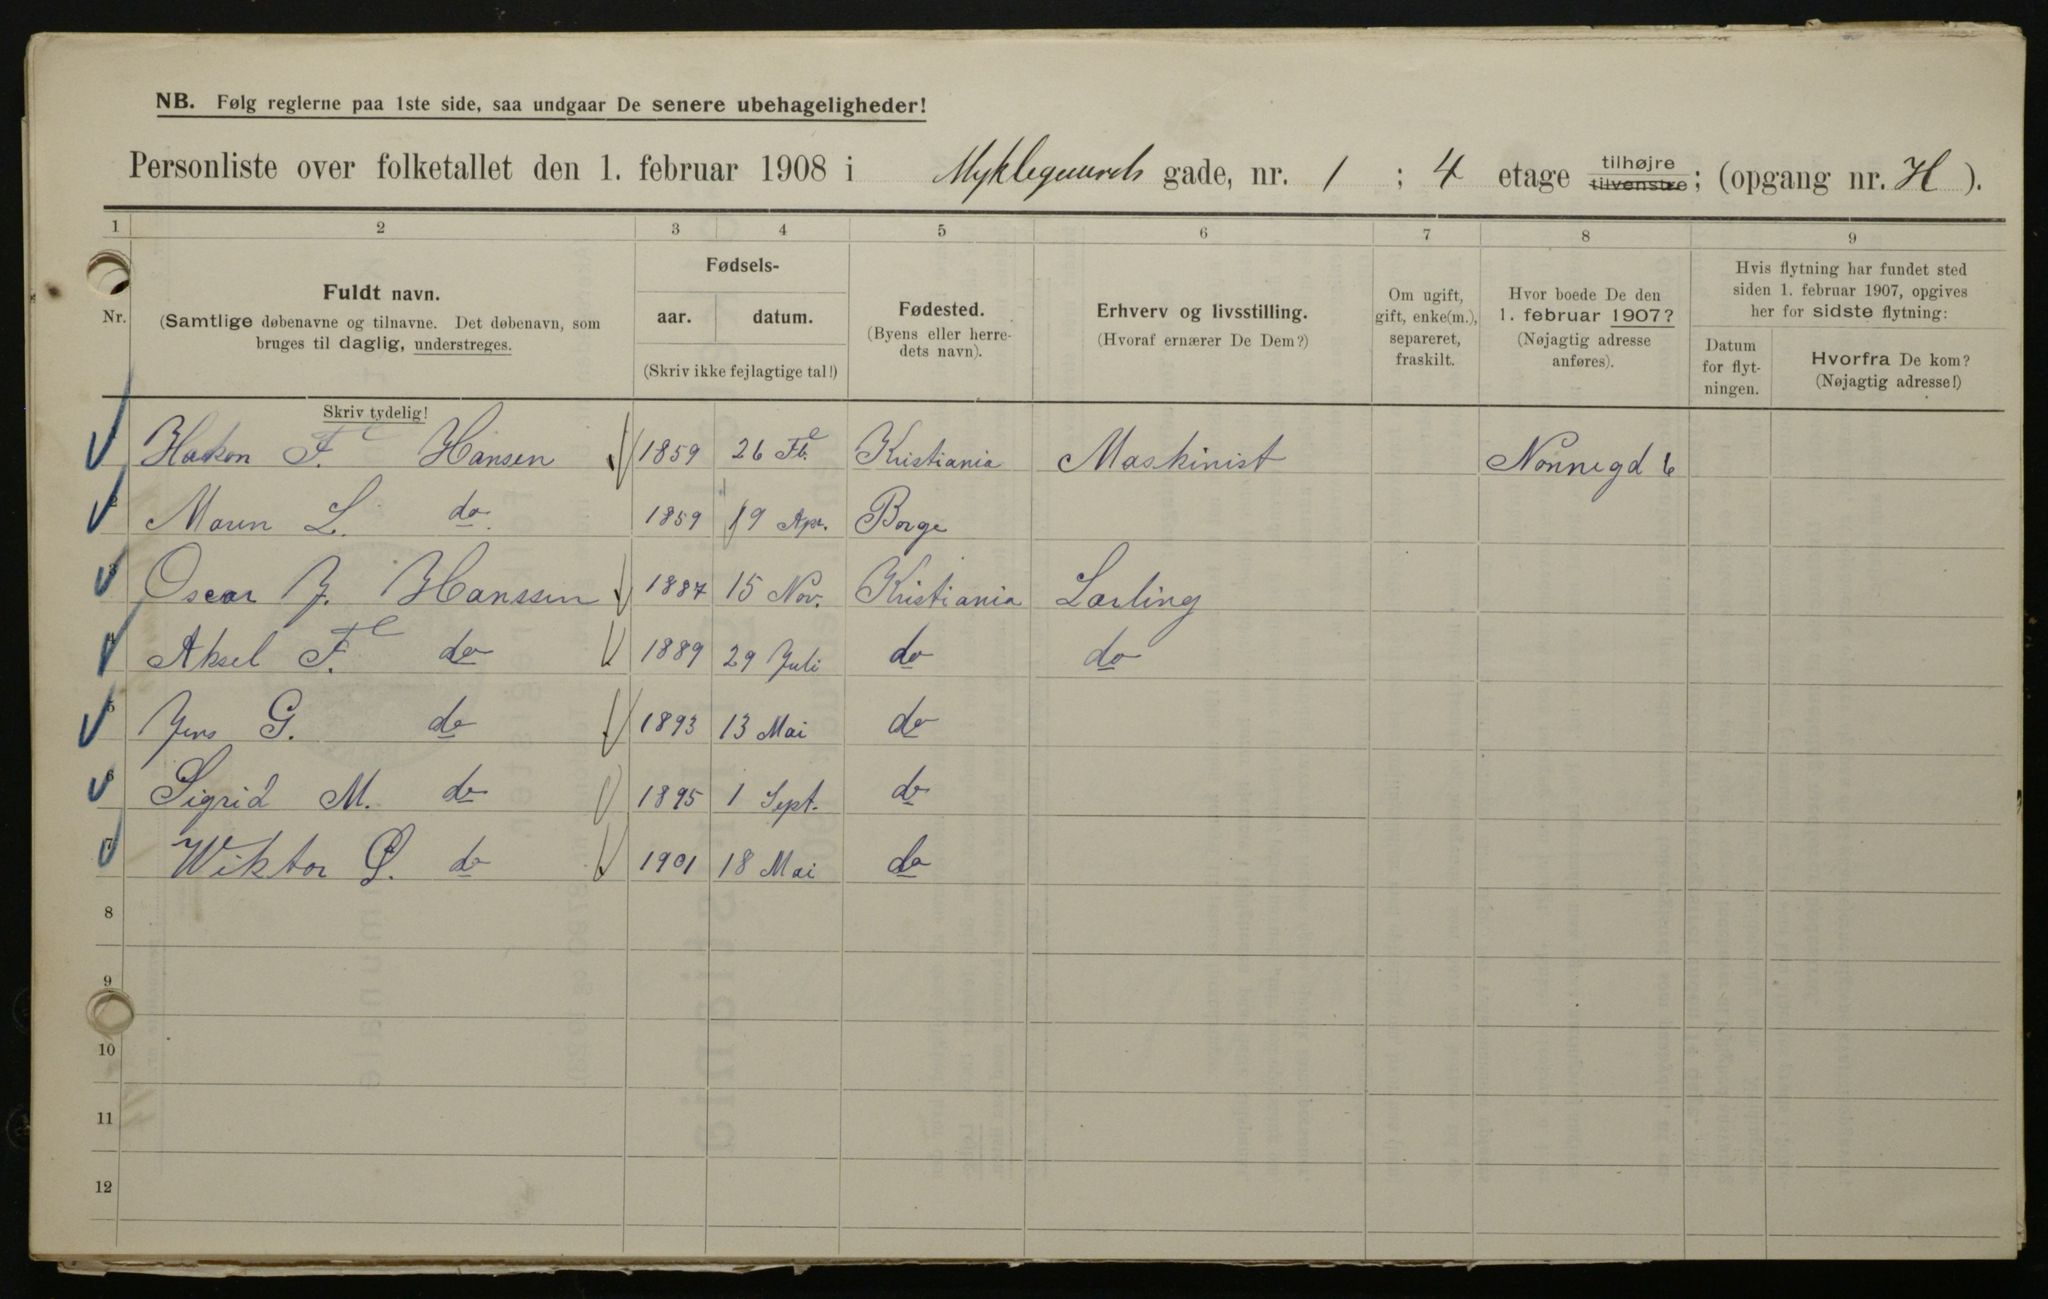 NB. Følg reglerne paa 1ste side, saa undgaar De senere ubehageligheder!
Personliste over folketallet den 1. februar 1908 i Myklegaards gade, nr. 1 ; 4 etage tilhøjre tilvenstre; (opgang nr. H ).
1 2 3 4 5 6 7 8 9
Nr.
Fuldt navn.
(Samtlige døbenavne og tilnavne. Det døbenavn, som
bruges til daglig, understreges.
Skriv tydelig!
Fødsels-
aar. datum.
(Skriv ikke fejlagtige tal!)
Fødested.
(Byens eller herre-
dets navn).
Erhverv og livsstilling.
(Hvoraf ernærer De Dem?)
Om ugift,
gift, enke(m.),
separeret,
fraskilt.
Hvor boede De den
1. februar 1907?
(Nøjagtig adresse
anføres).
Hvis flytning har fundet sted
siden 1. februar 1907, opgives
her for sidste flytning:
Datum
for flyt-
ningen.
Hvorfra De kom?
(Nøjagtig adresse!)
Hakon F. Hansen 1859 26 Fb. Kristiania Maskinist Nonnegd 6
2 Maren L. do 1859 19 Apr. Borge
3 Oscar J. Hanssen 1887 15 Nov. Kristiania Lærling
4 Aksel F. do 1889 29 Juli do do
5 Jens G. do 1893 13 Mai do
6 Sigrid M. do 1895 1 Sept. do
7 Wiktor do 1901 18 Mai do
8
9
10
11
12